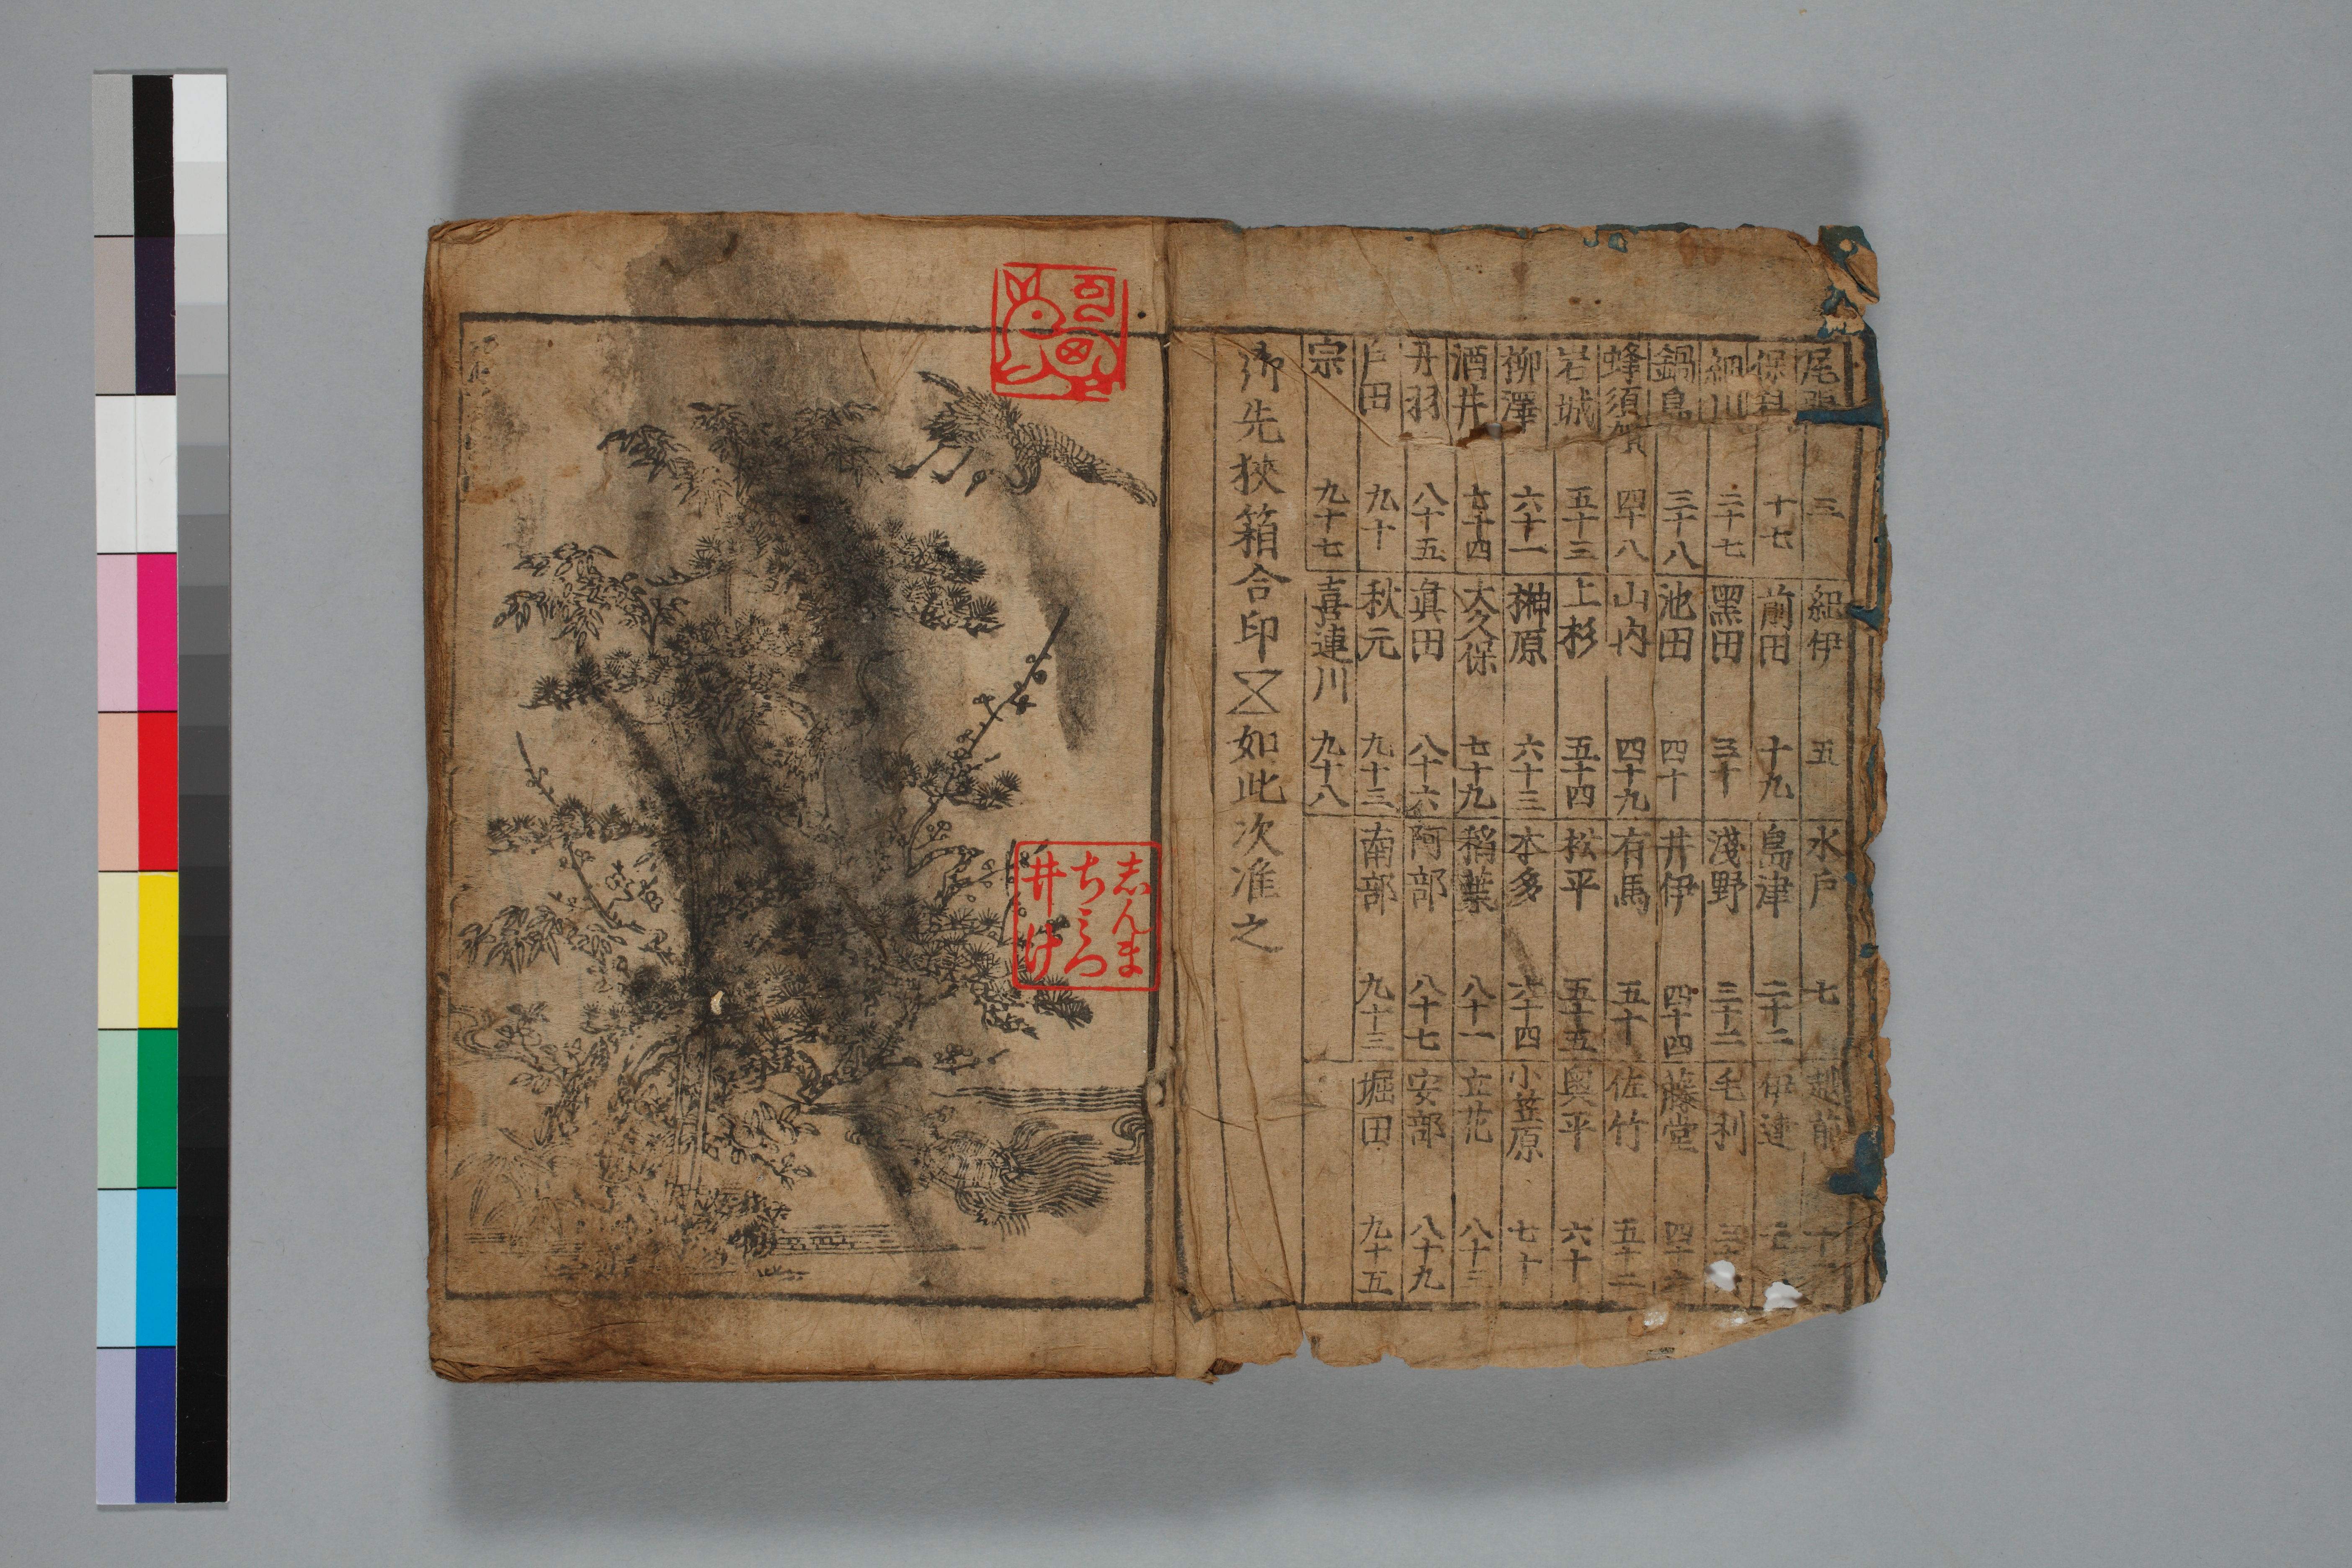 尾張 三 紀伊 五 水戶 七 越前 十
保科 十七 前田 十九 島津 二十二 伊達
細川 二十七 黑田 三十 淺野 三十二 毛利
鍋島 三十八 池田 四十 井伊 四十四 藤堂
蜂須賀 四十八 山内 四十九 有馬 五十 佐竹 五十二
岩城 五十三 上杉 五十四 松平 五十五 奧平 六十
柳澤 六十一 榊原 六十三 本多 六十四 小笠原 七十
酒井 七十四 大久保 七十九 稻葉 八十一 立花 八十三
丹羽 八十五 眞田 八十六 阿部 八十七 安部 八十九
戶田 九十 秋元 九十三 南部 九十三 堀田 九十五
宗 九十七 喜連川 九十八
御先狹箱合印 如此次准之
志んま
ちミつ
井け